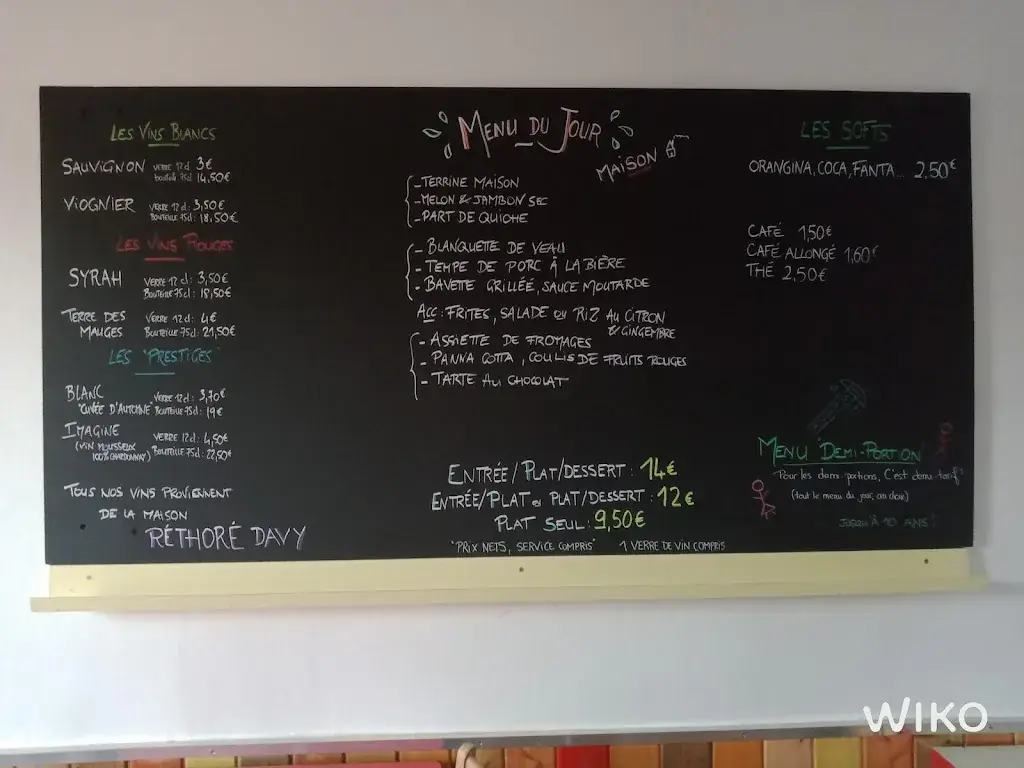 LES VINS BLANCS
SAUVIGNON VERRE 12cl: 3€
bouteille 75cl: 14,50€
VIOGNIER VERRE 12cl: 3,50€
BOUTEILLE 75cl: 18,50€
LES VINS ROUGES
SYRAH VERRE 12cl: 3,50€
BOUTEILLE 75cl: 18,50€
TERRE DES MAUGES VERRE 12cl: 4€
BOUTEILLE 75cl: 21,50€
LES "PRESTIGES"
BLANC VERRE 12cl: 3,70€
"CUVÉE D'AUTOMNE" BOUTEILLE 75cl: 19€
IMAGINE VERRE 12cl: 4,50€
(VIN MOUSSEUX BOUTEILLE 75cl: 22,50€
100% CHARDONNAY)
TOUS NOS VINS PROVIENNENT
DE LA MAISON
RÉTHORÉ DAVY
MENU DU JOUR
MAISON
- TERRINE MAISON
- MELON & JAMBON SEC
- PART DE QUICHE
- BLANQUETTE DE VEAU
- TEMPE DE PORC À LA BIÈRE
- BAVETTE GRILLÉE, SAUCE MOUTARDE
ACC: FRITES, SALADE OU RIZ AU CITRON
& GINGEMBRE
- ASSIETTE DE FROMAGES
- PANNA COTTA, COULIS DE FRUITS ROUGES
- TARTE AU CHOCOLAT
ENTRÉE/PLAT/DESSERT: 14€
ENTRÉE/PLAT ou PLAT/DESSERT: 12€
PLAT SEUL: 9,50€
"PRIX NETS, SERVICE COMPRIS" 1 VERRE DE VIN COMPRIS
LES SOFTS
ORANGINA, COCA, FANTA... 2,50€
CAFÉ 1,50€
CAFÉ ALLONGÉ 1,60€
THÉ 2,50€
MENU DEMI-PORTION
Pour les demi-portions, C'est demi-tarif
(tout le menu du jour, au choix)
JUSQU'À 10 ANS!
WIKO